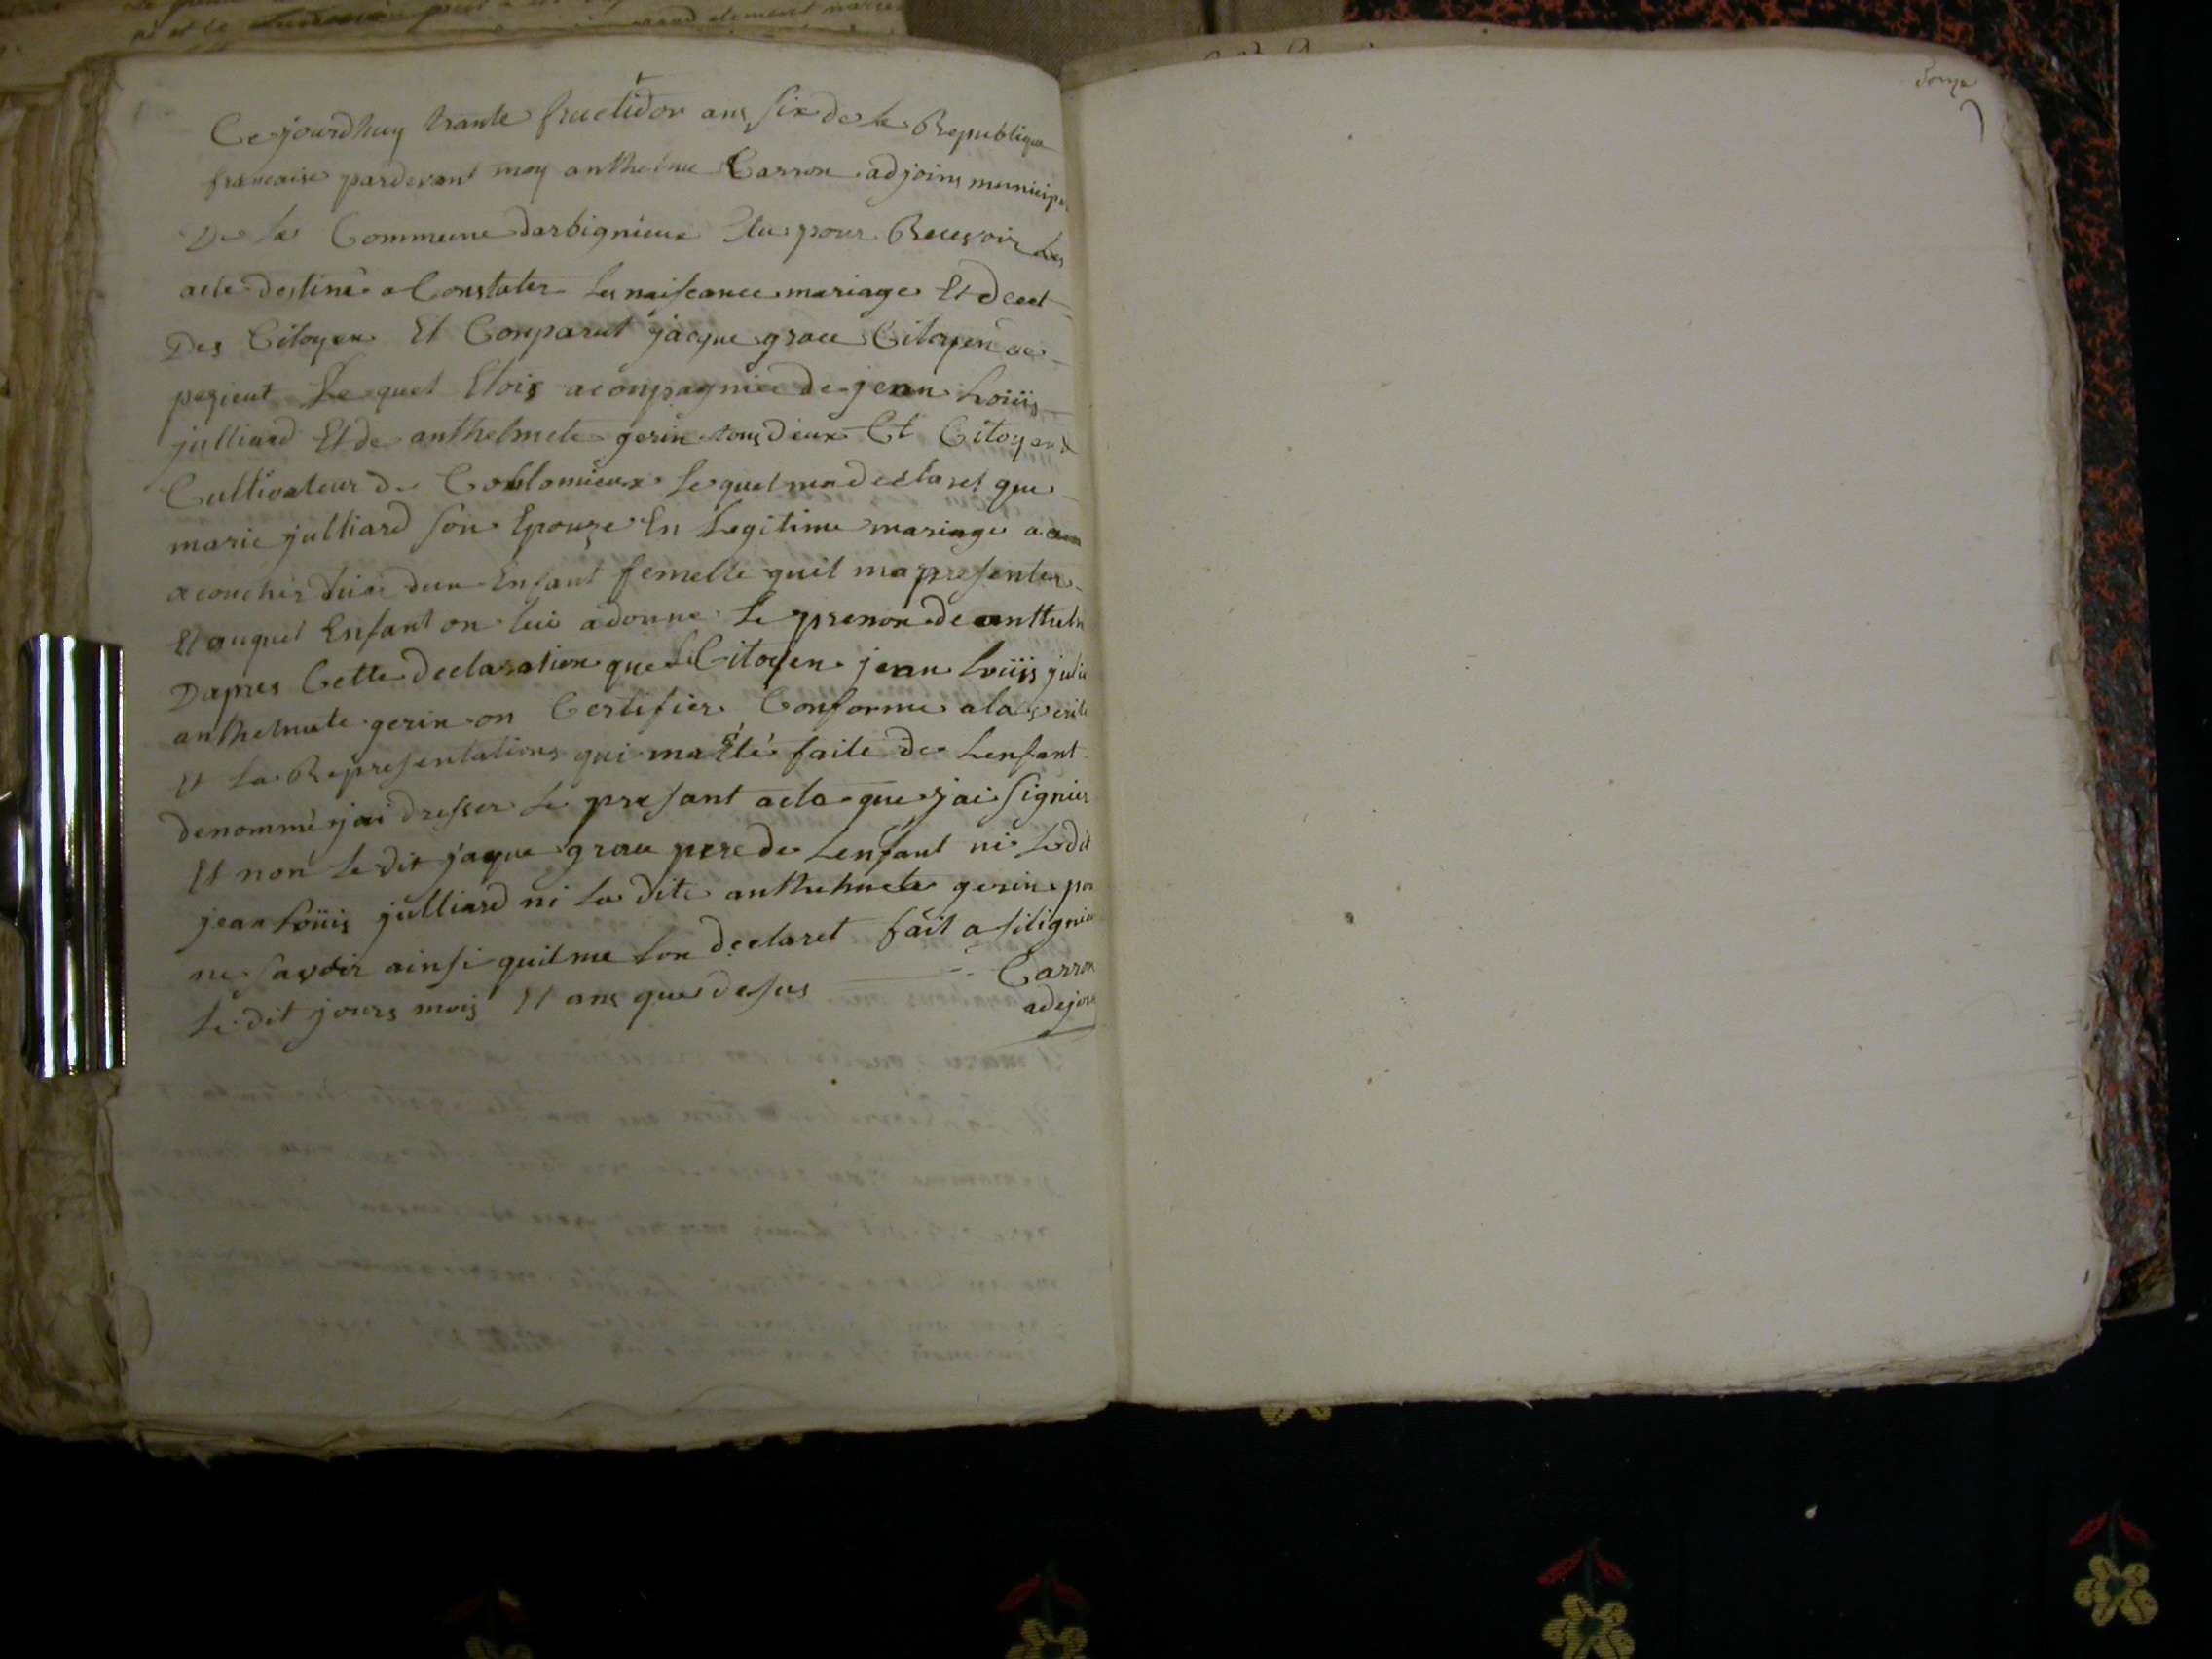 Ce jourdhuy trante fructidor ans six de la Republique
francaise pardevant moy anthelme Carron adjoins municipa
De la Commune darbignieux Elu pour Recevoir Les
acte destiné a Constater Les naiscance mariage Et deest
Des Citoyen Et Conparut jacque grace Citoyen de
pezieut Le quel Etois aconpagniee de jean Loüis
julliard Et de anthelmete gerin tous deux Et Citoyens
Cultivateur de Coblomieux Le quel ma declaret que
marie julliard son Epouze En Legitime mariage a
acouchér dun Enfant femelle quil ma presenter
Et auquel Enfant on lui adonne Le prenon de anthelm
Dapres Cette declaration que Le Citoyen jean Loüis julli
anthelmete gerin on Certifier Conforme a la verite
Et La Representations qui ma Eté faite de Lenfant
denommé jai dresser Le presant acte que jai signier
Et non Le dit jaque grace pere de Lenfant ni Ledit
jean Loüis julliard ni La dite anthelmete gerin po
ne savoir ainsi quil me Lon declaret fait a silignieu
Le dit jours mois Et ans que desus Carron
adejoin